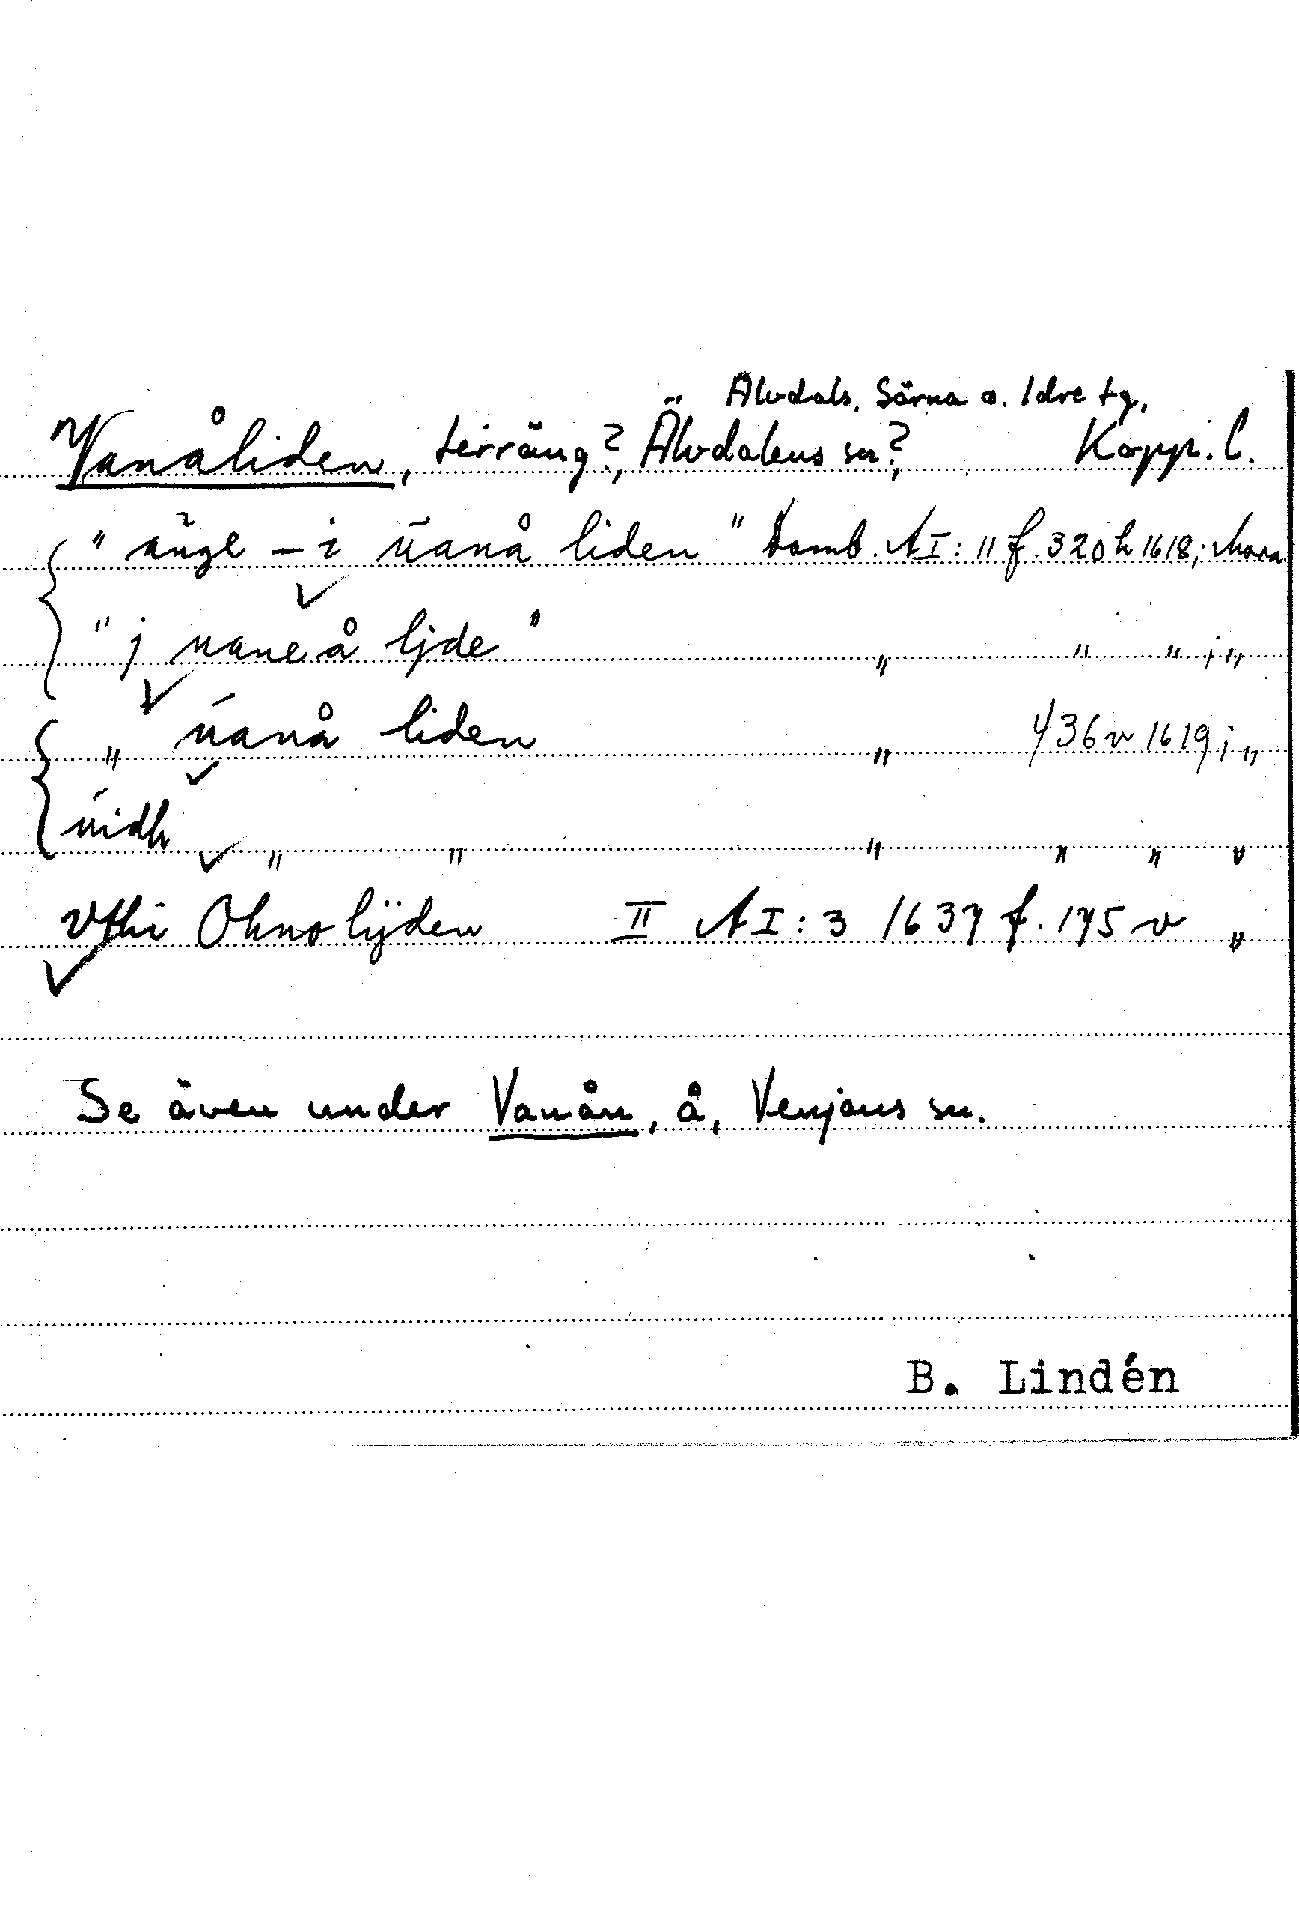 Älvdals, Särna o. Idre tg,
Vanåliden, terräng?, Älvdalens sn? Kopp. l.
" änge – i ŭanå liden " Domb. AI: 11 f. 320 h 1618; Mora
" j uane å ljde " " " " ; "
" ŭanå liden " 436 v 1619; "
ŭidh " " " " " "
Vthi Ohno lijden II AI: 3 1637 f. 175 v "
Se även under Vanån, å, Venjans sn.
B. Lindén